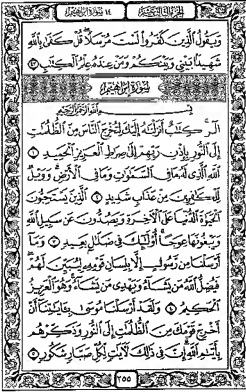 سورة إبراهيم ١٤
وَيَقُولُ الَّذِينَ كَفَرُوا لَسْتَ مُرْسَلًا قُلْ كَفَىٰ بِاللَّهِ
شَهِيدًا بَيْنِي وَبَيْنَكُمْ وَمَنْ عِندَهُ عِلْمُ الْكِتَٰبِ ٤٣
سورة إبراهيم
بِسْمِ اللَّهِ الرَّحْمَٰنِ الرَّحِيمِ
الٓر كِتَٰبٌ أَنزَلْنَٰهُ إِلَيْكَ لِتُخْرِجَ النَّاسَ مِنَ الظُّلُمَٰتِ
إِلَى النُّورِ بِإِذْنِ رَبِّهِمْ إِلَىٰ صِرَٰطِ الْعَزِيزِ الْحَمِيدِ ١
اللَّهِ الَّذِي لَهُ مَا فِي السَّمَٰوَٰتِ وَمَا فِي الْأَرْضِ وَوَيْلٌ
لِّلْكَٰفِرِينَ مِنْ عَذَابٍ شَدِيدٍ ٢ الَّذِينَ يَسْتَحِبُّونَ
الْحَيَوٰةَ الدُّنْيَا عَلَى الْأٓخِرَةِ وَيَصُدُّونَ عَن سَبِيلِ اللَّهِ
وَيَبْغُونَهَا عِوَجًا أُولَٰئِكَ فِي ضَلَٰلٍ بَعِيدٍ ٣ وَمَا
أَرْسَلْنَا مِن رَّسُولٍ إِلَّا بِلِسَانِ قَوْمِهِ لِيُبَيِّنَ لَهُمْ
فَيُضِلُّ اللَّهُ مَن يَشَاءُ وَيَهْدِي مَن يَشَاءُ وَهُوَ الْعَزِيزُ
الْحَكِيمُ ٤ وَلَقَدْ أَرْسَلْنَا مُوسَىٰ بِـَٔايَٰتِنَا أَنْ
أَخْرِجْ قَوْمَكَ مِنَ الظُّلُمَٰتِ إِلَى النُّورِ وَذَكِّرْهُم
بِأَيَّىٰمِ اللَّهِ إِنَّ فِي ذَٰلِكَ لَأٓيَٰتٍ لِّكُلِّ صَبَّارٍ شَكُورٍ ٥
٢٥٥